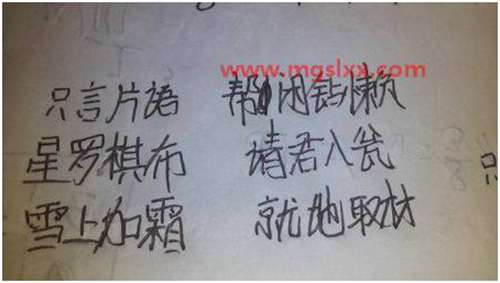 www.mgslxx.com
只言片語 帮闲钻懒
星罗棋布 请君入瓮
雪上加霜 就地取材